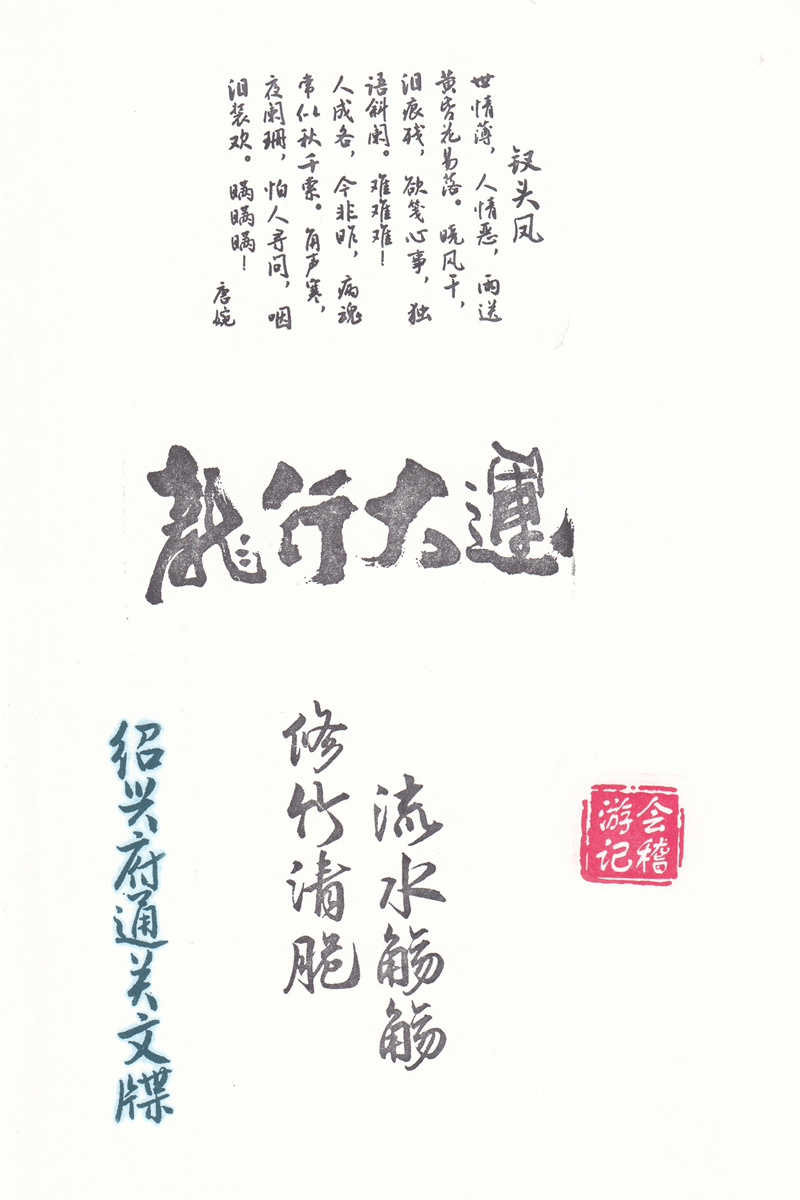 钗头凤
世情薄，人情恶，雨送
黄昏花易落。晓风干，
泪痕残，欲笺心事，独
语斜阑。难难难！
人成各，今非昨，病魂
常似秋千索。角声寒，
夜阑珊，怕人寻问，咽
泪装欢。瞒瞒瞒！
唐婉
龍行大運
会稽
游记
流水觞觞
修竹清脆
绍兴府通关文牒